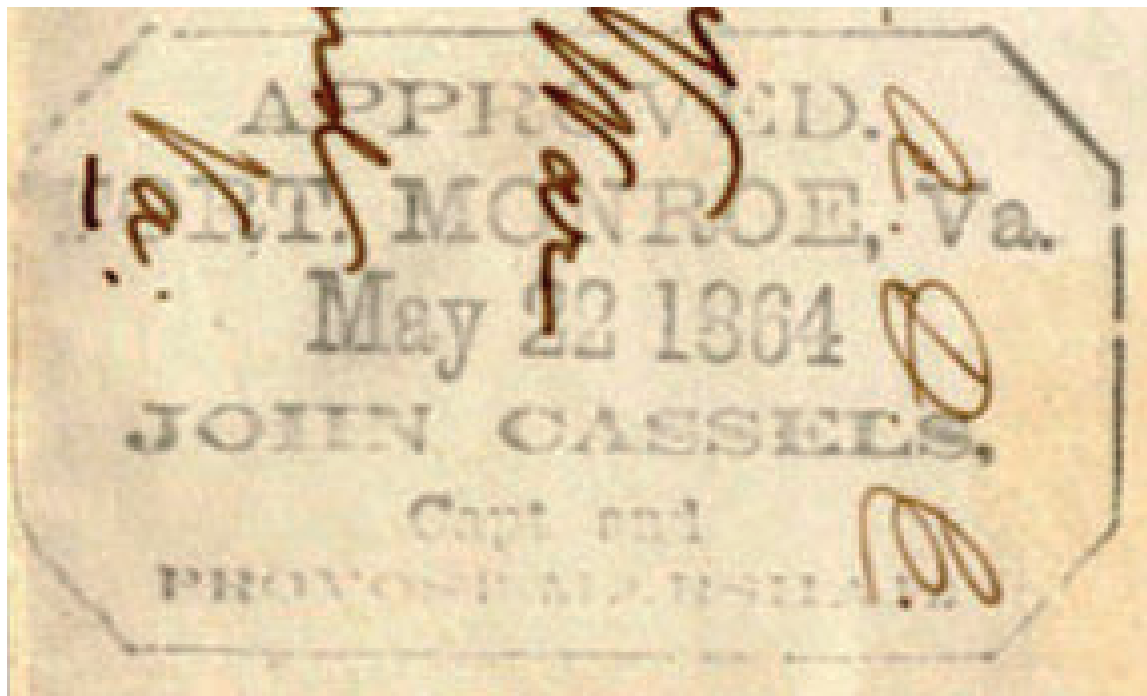 APPROVED.
FORT. MONROE, Va.
May 22 1864
JOHN CASSELS,
Capt and
PROVOST MARSHALL
Va.